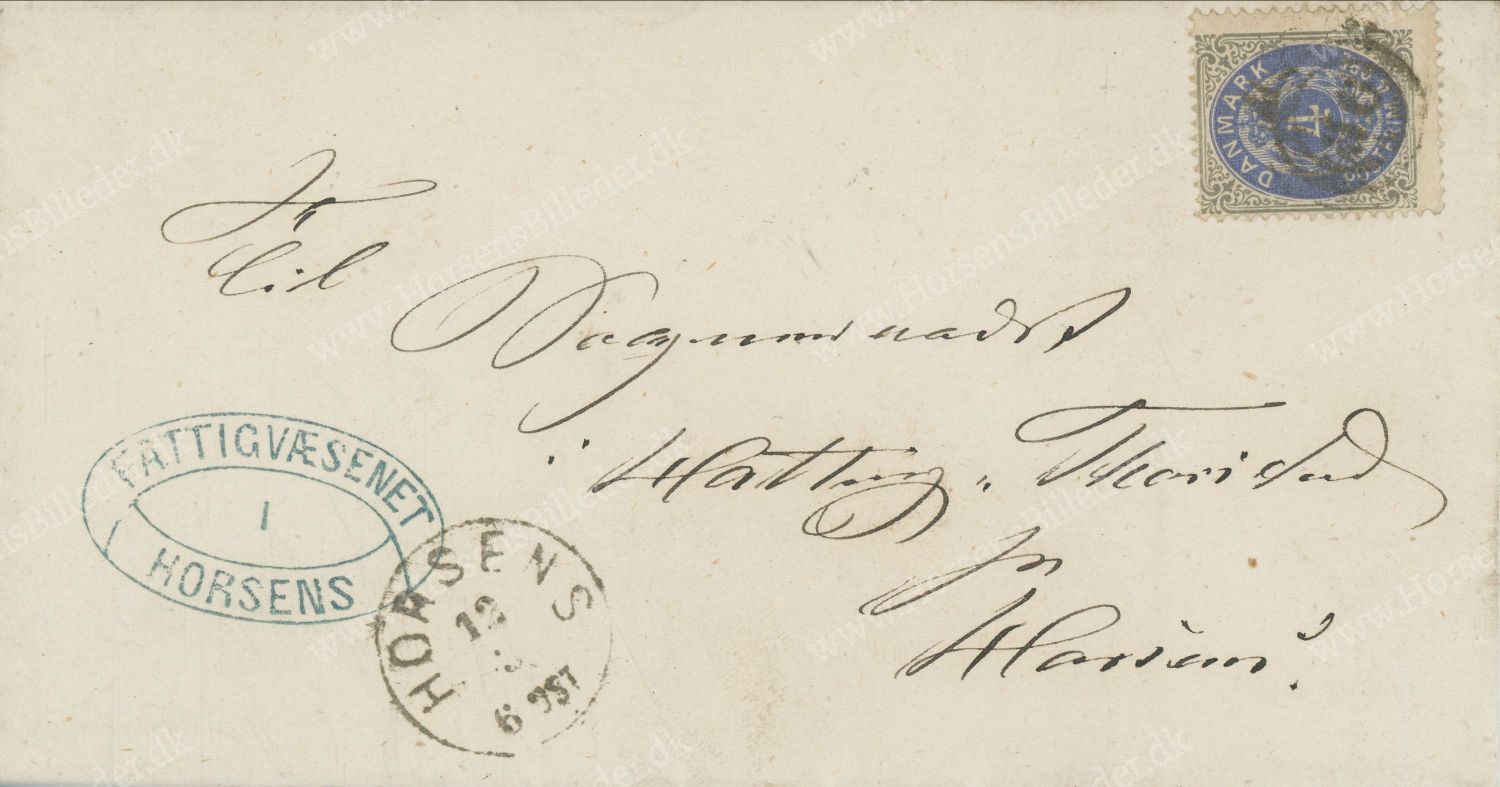 DANMARK
4
POSTFRIM
Til
Sogneraadet
i Hatting-Thorsted
pr
Horsens.
FATTIGVÆSENET
I
HORSENS
HORSENS
12
6 POST
www.HorsensBilleder.dk